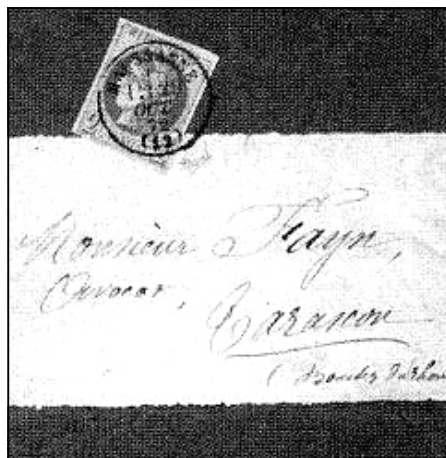 (12)
Monsieur Fayn,
Avocat,
Tarascon
(Bouches du Rhône